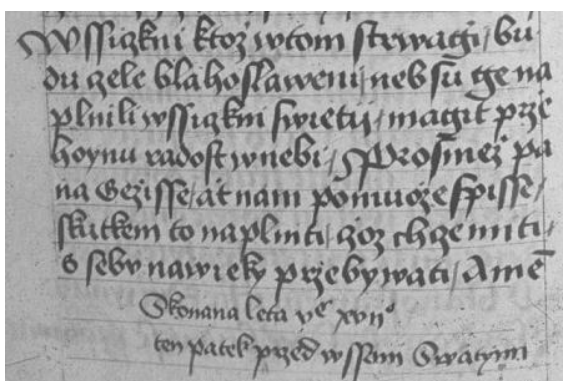 Wssiczkni ktoz wtom strwagi / bu
du zcele blahoslaweni / neb su ge na
plnili wssiczkni swietij / magit prze
hoynu radost wnebi / Prosmez pa
na Gezisse / at nam pomuoze spisse /
skutkem to naplniti / goz chce miti /
s sebu nawieky przebywati / Amē
Skonana leta vᶜ xvii°
ten patek przed wssemi Swatymi